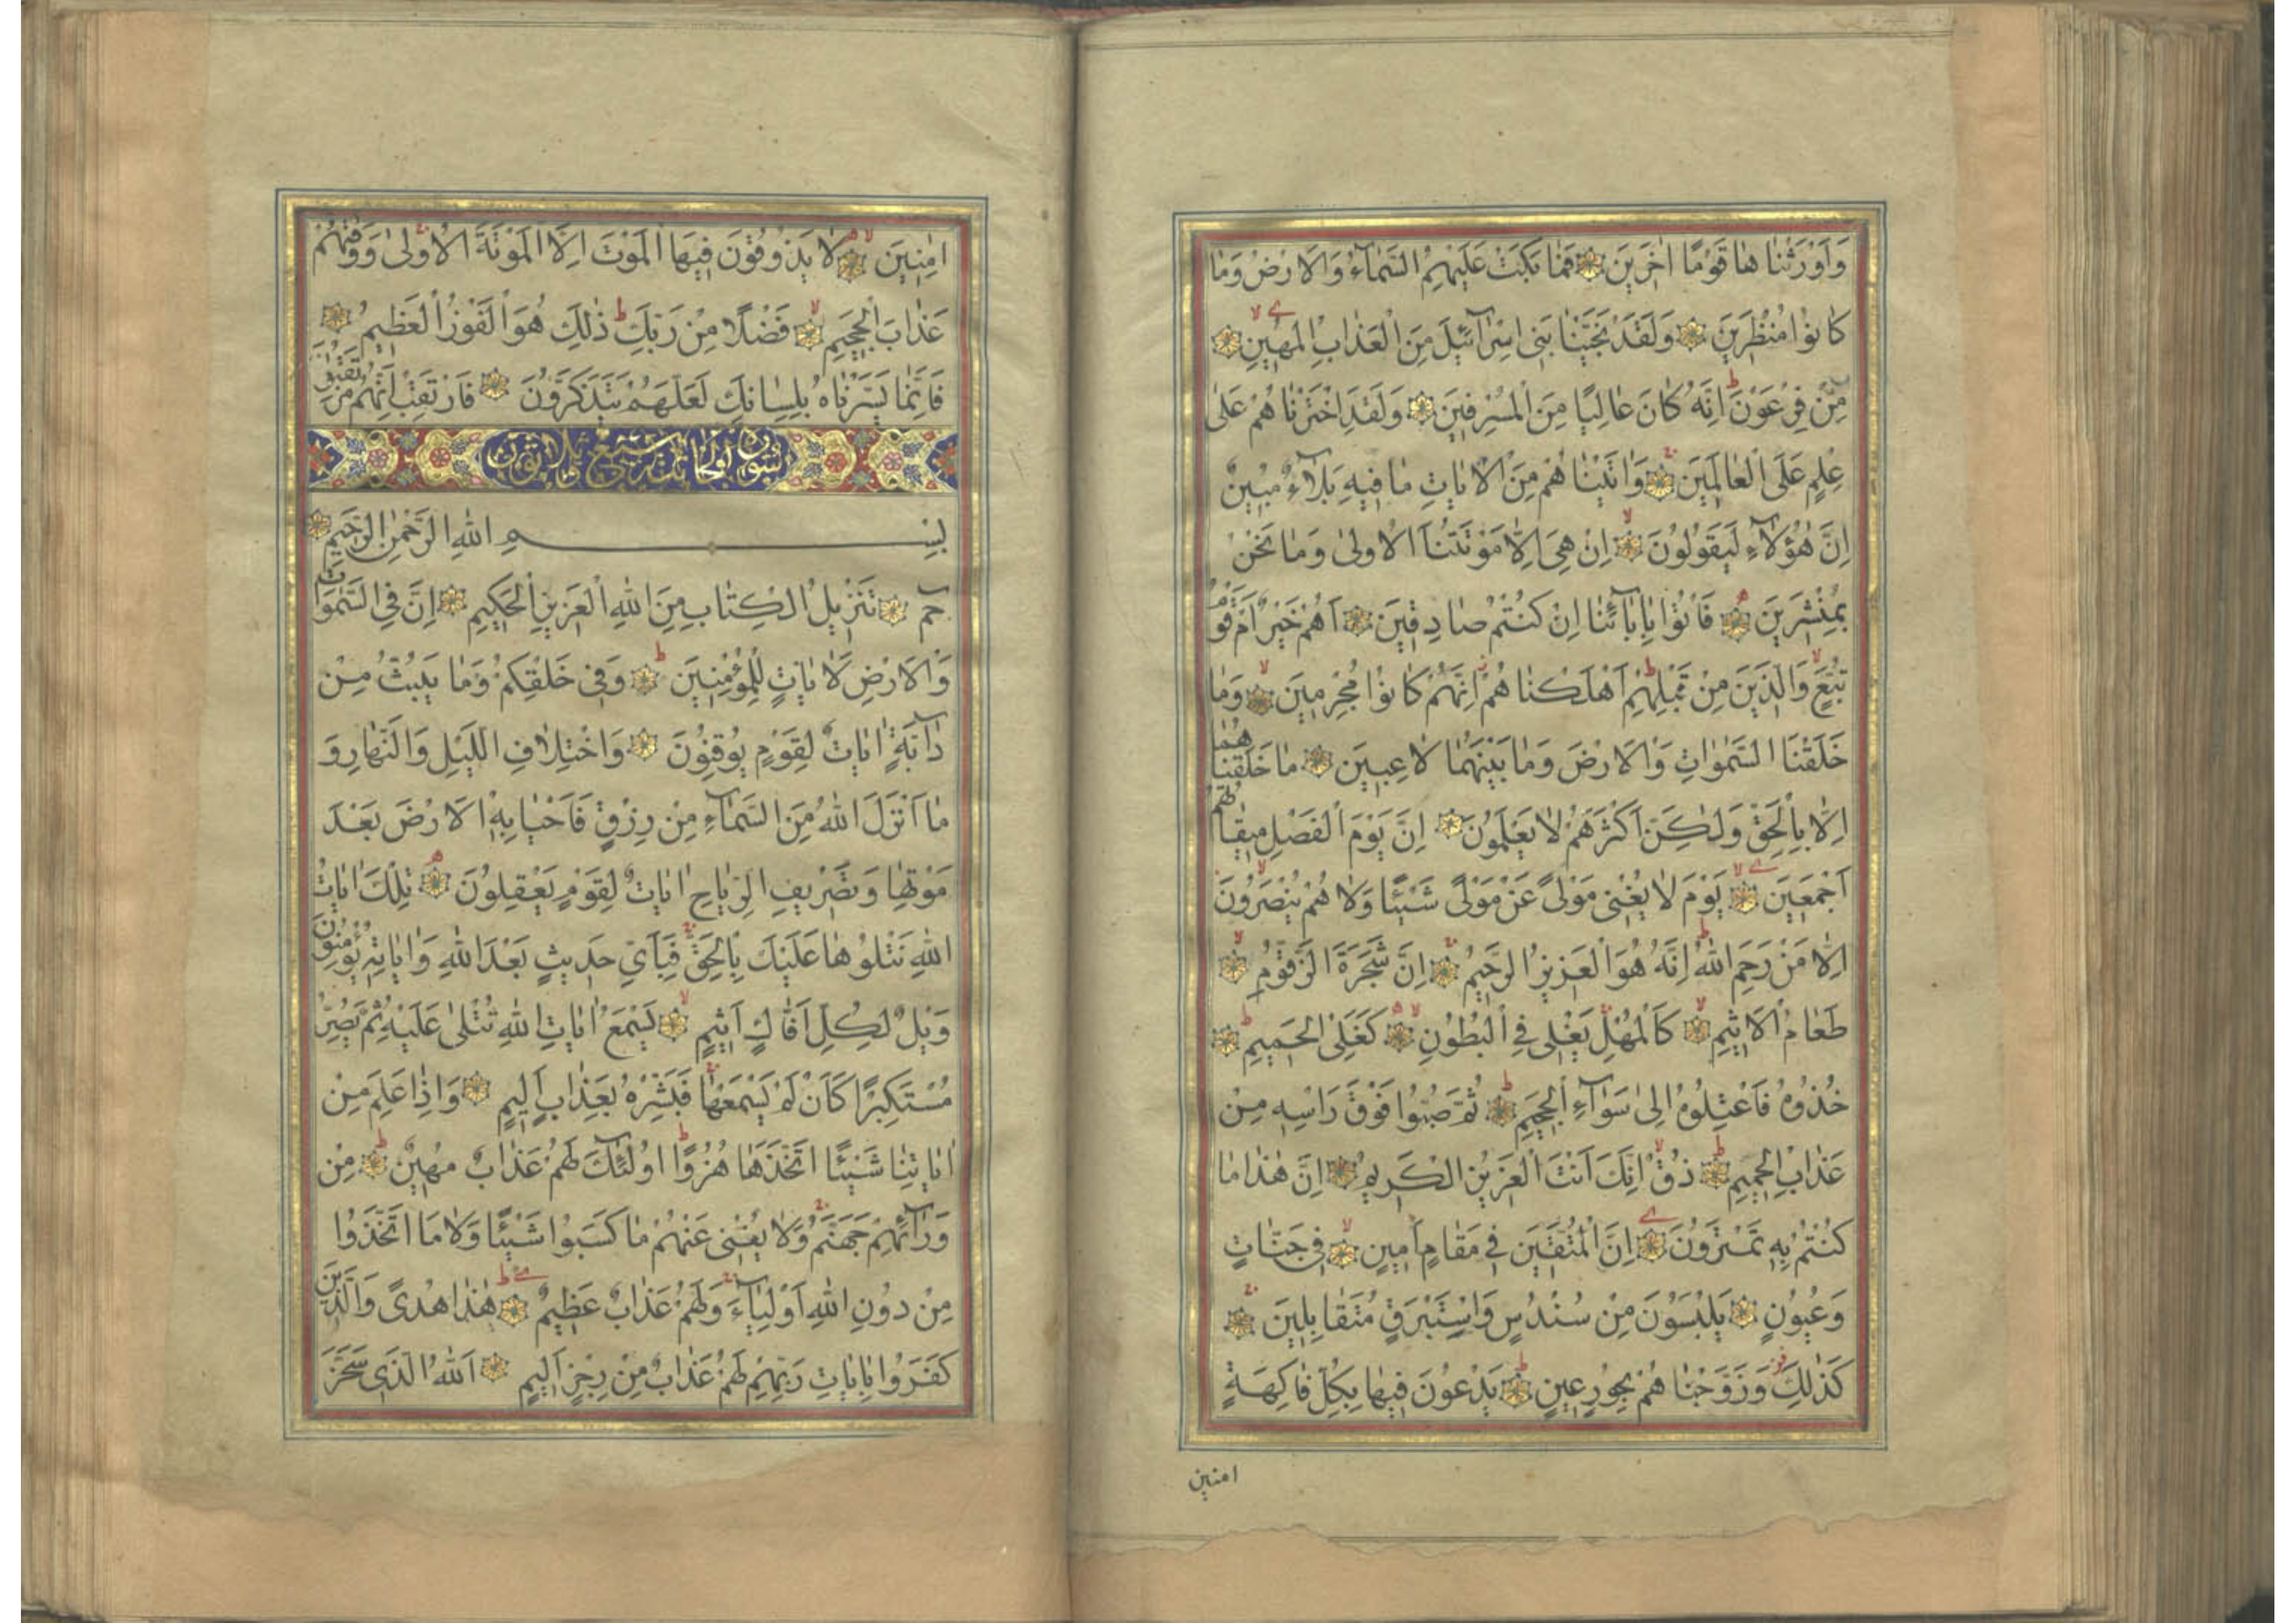 وَاَوْرَثْنَا هَا قَوْمًا اٰخَرِينَ فَمَا بَكَتْ عَلَيْهِمُ السَّمَآءُ وَالْاَرْضُ وَمَا
كَانُوا مُنْظَرِينَ وَلَقَدْ نَجَّيْنَا بَنِى اِسْرَآئِيلَ مِنَ الْعَذَابِ الْمُهِينِ
مِنْ فِرْعَوْنَ اِنَّهُ كَانَ عَالِيًا مِنَ الْمُسْرِفِينَ وَلَقَدِ اخْتَرْنَا هُمْ عَلٰى
عِلْمٍ عَلَى الْعَالَمِينَ وَاٰتَيْنَا هُمْ مِنَ الْاٰيَاتِ مَا فِيهِ بَلَآءٌ مُبِينٌ
اِنَّ هٰؤُلَآءِ لَيَقُولُونَ اِنْ هِىَ اِلَّا مَوْتَتُنَا الْاُولٰى وَمَا نَحْنُ
بِمُنْشَرِينَ فَأْتُوا بِاٰبَآئِنَا اِنْ كُنْتُمْ صَادِقِينَ اَهُمْ خَيْرٌ اَمْ قَوْمُ
تُبَّعٍ وَالَّذِينَ مِنْ قَبْلِهِمْ اَهْلَكْنَا هُمْ اِنَّهُمْ كَانُوا مُجْرِمِينَ وَمَا
خَلَقْنَا السَّمٰوَاتِ وَالْاَرْضَ وَمَا بَيْنَهُمَا لَاعِبِينَ مَا خَلَقْنَاهُمَا
اِلَّا بِالْحَقِّ وَلٰكِنَّ اَكْثَرَهُمْ لَا يَعْلَمُونَ اِنَّ يَوْمَ الْفَصْلِ مِيقَاتُهُمْ
اَجْمَعِينَ يَوْمَ لَا يُغْنِى مَوْلًى عَنْ مَوْلًى شَيْئًا وَلَا هُمْ يُنْصَرُونَ
اِلَّا مَنْ رَحِمَ اللهُ اِنَّهُ هُوَ الْعَزِيزُ الرَّحِيمُ اِنَّ شَجَرَةَ الزَّقُّومِ
طَعَامُ الْاَثِيمِ كَالْمُهْلِ يَغْلِى فِى الْبُطُونِ كَغَلْىِ الْحَمِيمِ
خُذُوهُ فَاعْتِلُوهُ اِلٰى سَوَآءِ الْجَحِيمِ ثُمَّ صُبُّوا فَوْقَ رَأْسِهِ مِنْ
عَذَابِ الْحَمِيمِ ذُقْ اِنَّكَ اَنْتَ الْعَزِيزُ الْكَرِيمُ اِنَّ هٰذَا مَا
كُنْتُمْ بِهِ تَمْتَرُونَ اِنَّ الْمُتَّقِينَ فِى مَقَامٍ اَمِينٍ فِى جَنَّاتٍ
وَعُيُونٍ يَلْبَسُونَ مِنْ سُنْدُسٍ وَاِسْتَبْرَقٍ مُتَقَابِلِينَ
كَذٰلِكَ وَزَوَّجْنَا هُمْ بِحُورٍ عِينٍ يَدْعُونَ فِيهَا بِكُلِّ فَاكِهَةٍ
امنين
اٰمِنِينَ لَا يَذُوقُونَ فِيهَا الْمَوْتَ اِلَّا الْمَوْتَةَ الْاُولٰى وَوَقٰهُمْ
عَذَابَ الْجَحِيمِ فَضْلًا مِنْ رَبِّكَ ذٰلِكَ هُوَ الْفَوْزُ الْعَظِيمُ
فَاِنَّمَا يَسَّرْنَاهُ بِلِسَانِكَ لَعَلَّهُمْ يَتَذَكَّرُونَ فَارْتَقِبْ اِنَّهُمْ مُرْتَقِبُونَ
سورة الجاثية سبع ثلاثون
بِسْمِ اللهِ الرَّحْمٰنِ الرَّحِيمِ
حٰمٓ تَنْزِيلُ الْكِتَابِ مِنَ اللهِ الْعَزِيزِ الْحَكِيمِ اِنَّ فِى السَّمٰوَاتِ
وَالْاَرْضِ لَاٰيَاتٍ لِلْمُؤْمِنِينَ وَفِى خَلْقِكُمْ وَمَا يَبُثُّ مِنْ
دَآبَّةٍ اٰيَاتٌ لِقَوْمٍ يُوقِنُونَ وَاخْتِلَافِ اللَّيْلِ وَالنَّهَارِ وَ
مَا اَنْزَلَ اللهُ مِنَ السَّمَآءِ مِنْ رِزْقٍ فَاَحْيَا بِهِ الْاَرْضَ بَعْدَ
مَوْتِهَا وَتَصْرِيفِ الرِّيَاحِ اٰيَاتٌ لِقَوْمٍ يَعْقِلُونَ تِلْكَ اٰيَاتُ
اللهِ نَتْلُوهَا عَلَيْكَ بِالْحَقِّ فَبِاَىِّ حَدِيثٍ بَعْدَ اللهِ وَاٰيَاتِهِ يُؤْمِنُونَ
وَيْلٌ لِكُلِّ اَفَّاكٍ اَثِيمٍ يَسْمَعُ اٰيَاتِ اللهِ تُتْلٰى عَلَيْهِ ثُمَّ يُصِرُّ
مُسْتَكْبِرًا كَاَنْ لَمْ يَسْمَعْهَا فَبَشِّرْهُ بِعَذَابٍ اَلِيمٍ وَاِذَا عَلِمَ مِنْ
اٰيَاتِنَا شَيْئًا اتَّخَذَهَا هُزُوًا اُولٰئِكَ لَهُمْ عَذَابٌ مُهِينٌ مِنْ
وَرَآئِهِمْ جَهَنَّمُ وَلَا يُغْنِى عَنْهُمْ مَا كَسَبُوا شَيْئًا وَلَا مَا اتَّخَذُوا
مِنْ دُونِ اللهِ اَوْلِيَآءَ وَلَهُمْ عَذَابٌ عَظِيمٌ هٰذَا هُدًى وَالَّذِينَ
كَفَرُوا بِاٰيَاتِ رَبِّهِمْ لَهُمْ عَذَابٌ مِنْ رِجْزٍ اَلِيمٍ اَللهُ الَّذِى سَخَّرَ